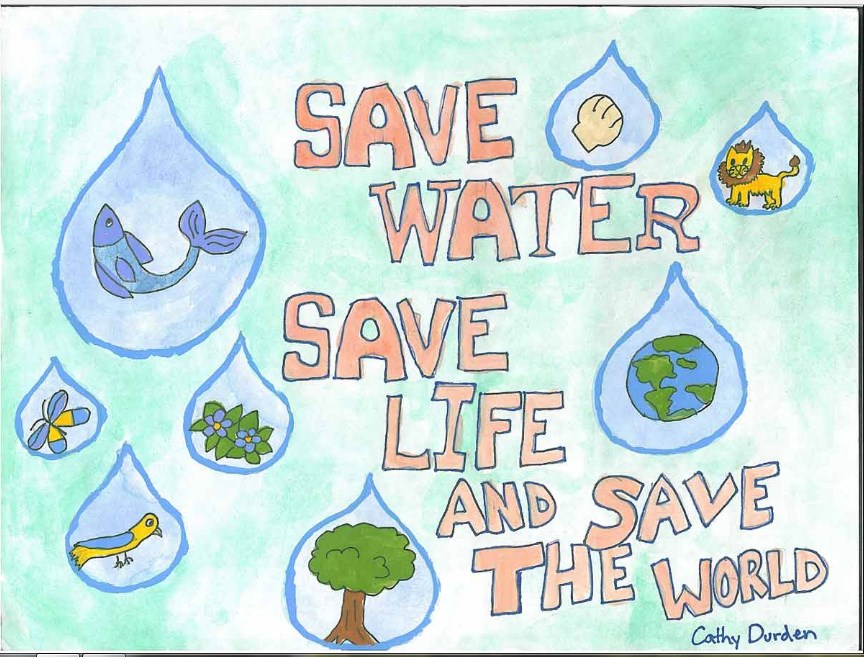 SAVE
WATER
SAVE
LIFE
AND SAVE
THE WORLD
Cathy Durden